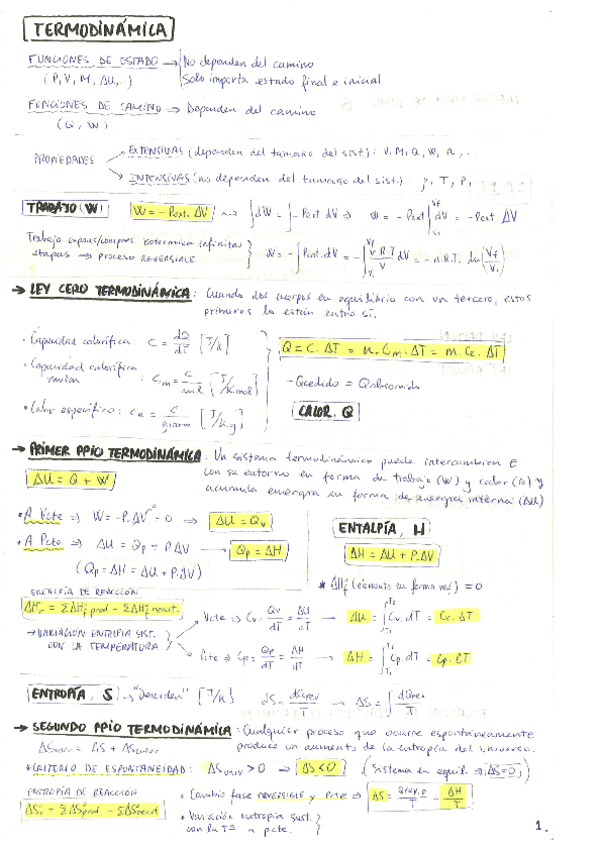 TERMODINÁMICA
FUNCIONES DE ESTADO → No dependen del camino
(P, V, M, ΔU, ..) Solo importa estado final e inicial
FUNCIONES DE CAMINO → Dependen del camino
(Q, W)
PROPIEDADES → EXTENSIVAS (dependen del tamaño del sist.): V, M, Q, W, n, ...
→ INTENSIVAS (no dependen del tamaño del sist.) ρ, T, P,
TRABAJO (W) W = - Pext. ΔV → ∫dW = ∫-Pext dV ⇒ W = - Pext ∫dV = - Pext ΔV
Trabajo expans/compres. isotermica infinitas
etapas → proceso REVERSIBLE W = -∫Pint. dV = -∫ n.R.T/V dV = - n.R.T. ln(Vf/Vi)
→ LEY CERO TERMODINÁMICA: Cuando dos cuerpos en equilibrio con un tercero, estos
primeros lo están entre sí.
• Capacidad calorífica: C = dQ/dT [J/K]
Q = C. ΔT = n. Cm. ΔT = m. Ce. ΔT
• Capacidad calorífica
molar : Cm =
- Qcedido = Qabsorbido
• Calor específico: Ce =
CALOR, Q
→ PRIMER PPIO TERMODINÁMICA: Un sistema termodinámico puede intercambiar E
con su entorno en forma de trabajo (W) y calor (Q) y
acumula energía en forma de energía interna (ΔU)
ΔU = Q + W
• A Vcte ⇒ W = -P.ΔV = 0 ⇒ ΔU = Qv
ENTALPÍA, H
• A Pcte ⇒ ΔU = Qp - PΔV → Qp = ΔH
ΔH = ΔU + P.ΔV
(Qp = ΔH = ΔU + P.ΔV)
= 0
ENTALPÍA DE REACCIÓN
→ VARIACIÓN ENTALPÍA SIST.
CON LA TEMPERATURA
Vcte ⇒ Cv = Qv/dT = ΔU/dT → ΔU = ∫Cv.dT = Cv.ΔT
Pcte ⇒ Cp = Qp/dT = ΔH/dT → ΔH = ∫Cp.dT = Cp.ΔT
ENTROPÍA, S → "Desorden" [J/K]
→ SEGUNDO PPIO TERMODINÁMICA: Cualquier proceso que ocurre espontáneamente
produce un aumento de la entropía del universo.
* CRITERIO DE ESPONTANEIDAD: ΔSuniv > 0 ⇒ ΔS < 0 (Sistema en equil. ⇒ ΔS=0)
ENTROPÍA DE REACCIÓN
• Cambio fase REVERSIBLE y Pcte ⇒ ΔS = Qrev,p/T = ΔH/T
• Variación entropía sist.
con la Tª a pcte.
1.